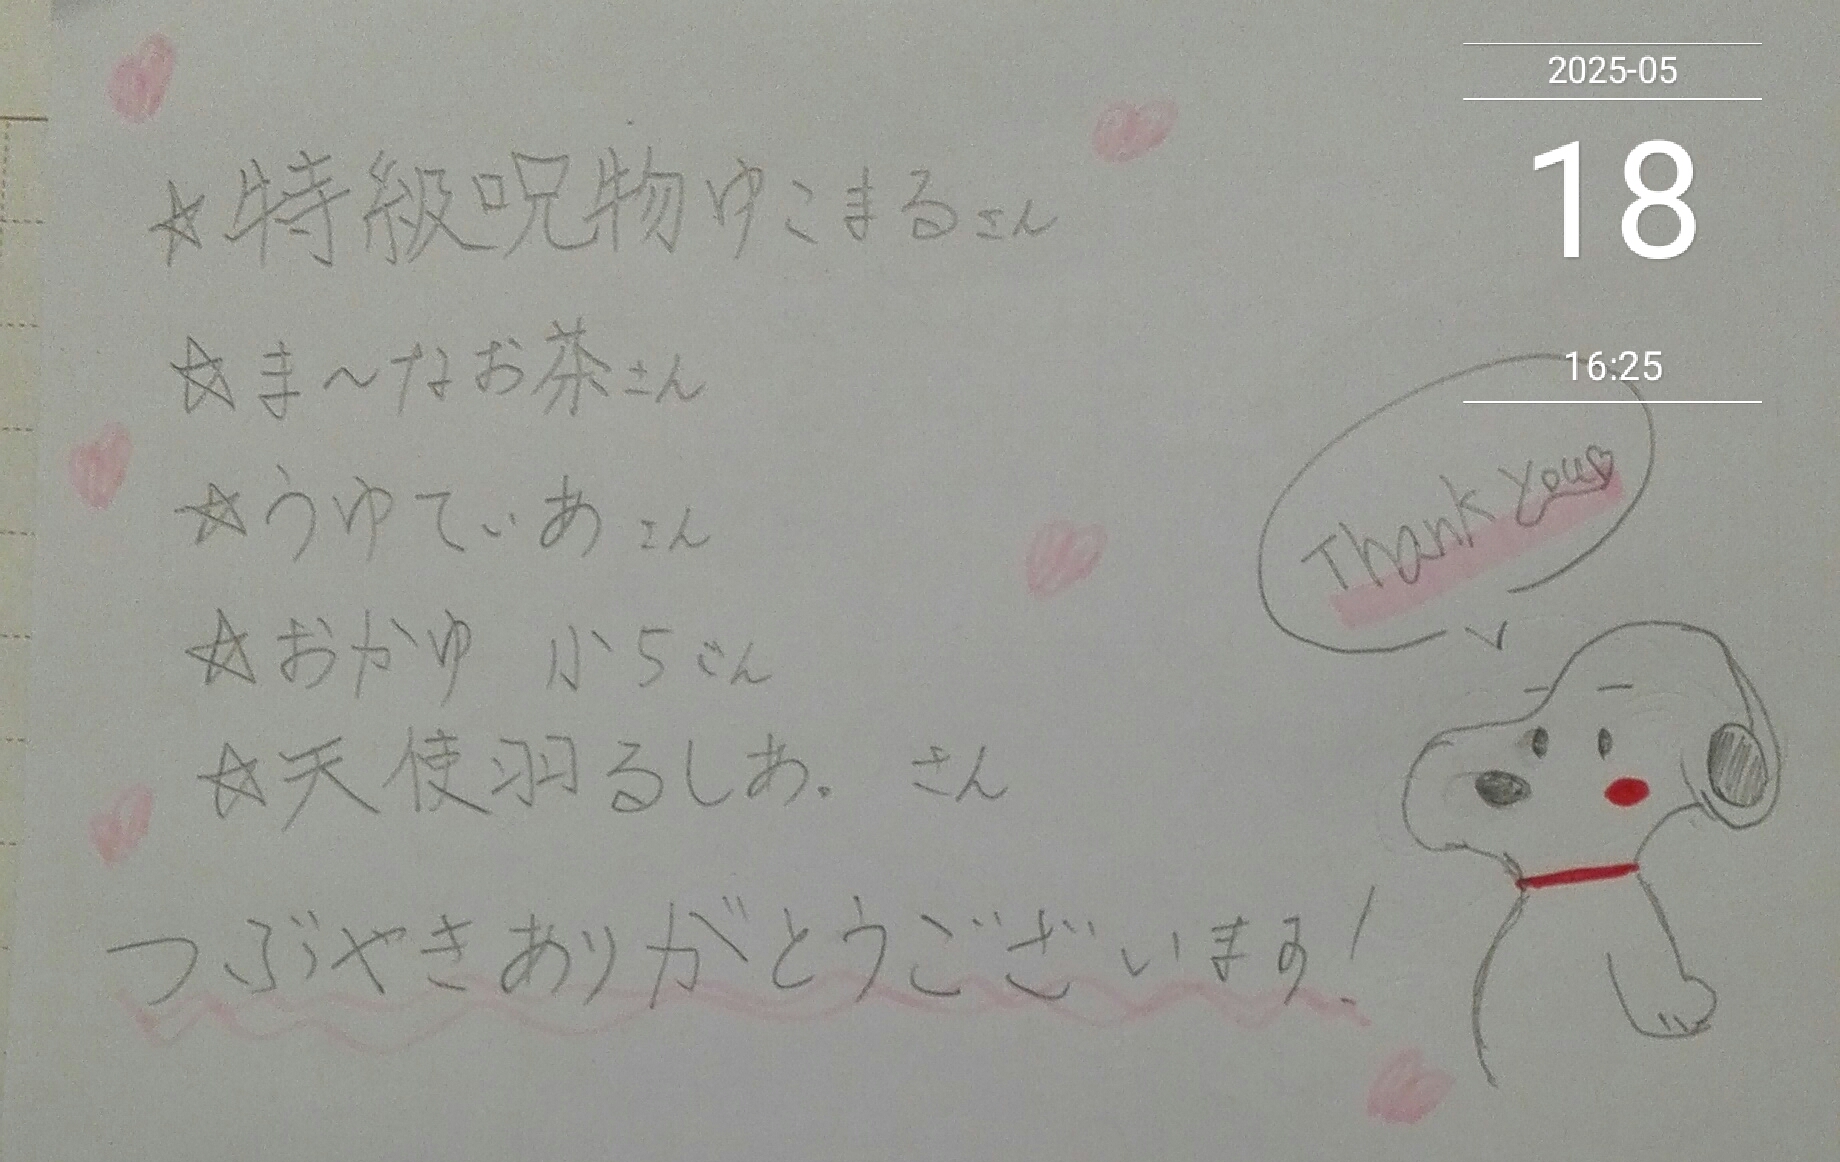 2025-05
18
16:25
☆特級呪物ゆこまるさん
☆ま～なお茶さん
☆うゆてぃあさん
☆おかゆ 小5さん
☆天使羽るしあ。さん
つぶやきありがとうございます!
Thank you♡